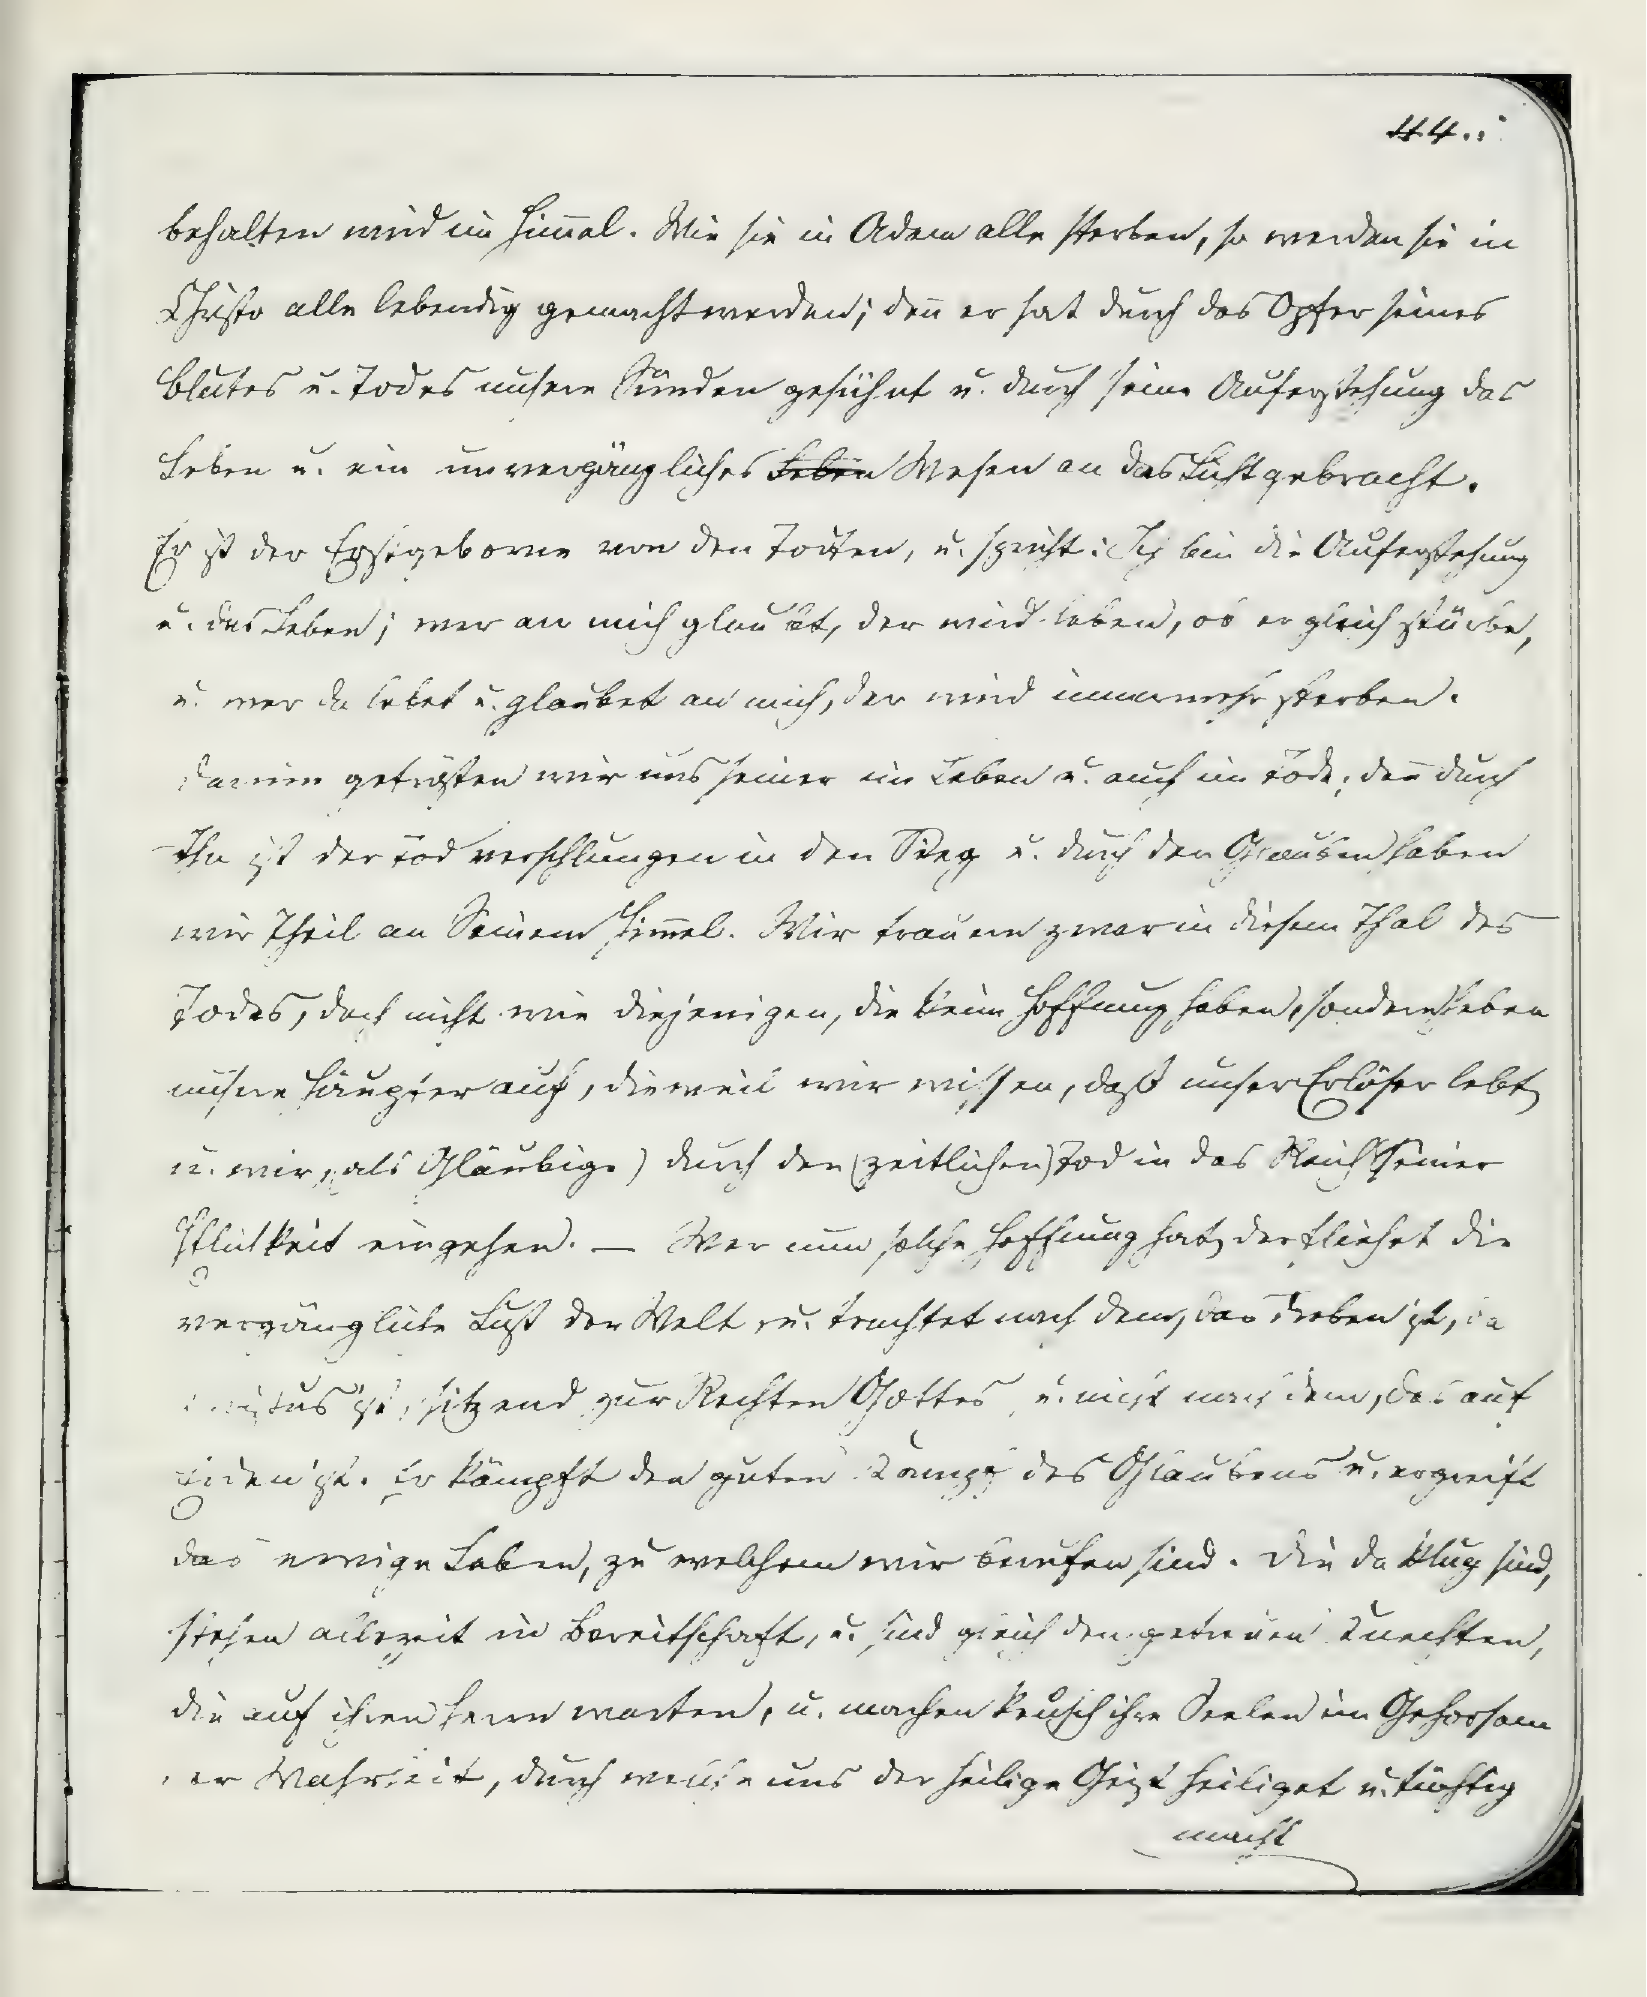 44.
behalten wird im Him̄el. Wie sie in Adam alle sterben, so werden sie in
Christo alle lebendig gemacht werden; den̄ er hat durch das Opfer seines
Blutes u. Todes unsere Sünden gesühnt u. durch seine Auferstehung das
Leben u. ein unvergängliches Leben Wesen an das Licht gebracht.
Er ist der Erstgeborne von den Todten, u. spricht: Ich bin die Auferstehung
u. das Leben; wer an mich glaubt, der wird leben, ob er gleich stürbe,
u. wer da lebet u. glaubet an mich, der wird nimmermehr sterben.
Darum getrösten wir uns seiner im Leben u. auch im Tode; den̄ durch
Ihn ist der Tod verschlungen in den Sieg u. durch den Glauben haben
wir Theil an Seinem Him̄el. Wir trauern zwar in diesem Thal des
Todes, doch nicht wie diejenigen, die keine Hoffnung haben, sondern heben
unsere Häupter auf, dieweil wir wissen, daß unser Erlöser lebt,
u. wir, (als Gläubige) durch den (zeitlichen) Tod in das Reich Seiner
Hrlichkeit eingehen. — Wer nun solche Hoffnung hat, der fliehet die
vergängliche Lust der Welt, u. trachtet nach dem, das droben ist, da
Christus ist, sitzend zur Rechten Gottes, u. nicht nach dem, das auf
Erden ist. Er kämpft den guten Kampf des Glaubens u. ergreift
das ewige Leben, zu welchem wir berufen sind. Die da klug sind,
stehen allezeit in Bereitschaft, u. sind gleich den getreuen Knechten,
die auf ihren Herrn warten, u. machen keusch ihre Seelen im Gehorsam
der Wahrheit, durch welche uns der heilige Geist heiliget u. tüchtig
macht